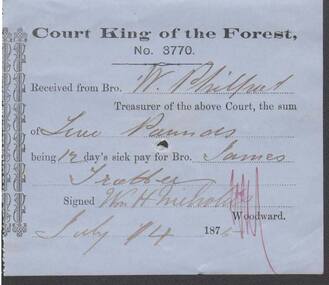 Court King of the Forest,
No. 3770.
Received from Bro. W.
Treasurer of the above Court, the sum
of Pounds
being 12 day's sick pay for Bro. James
Signed Wm H Nicholls
Woodward.
July 14 187